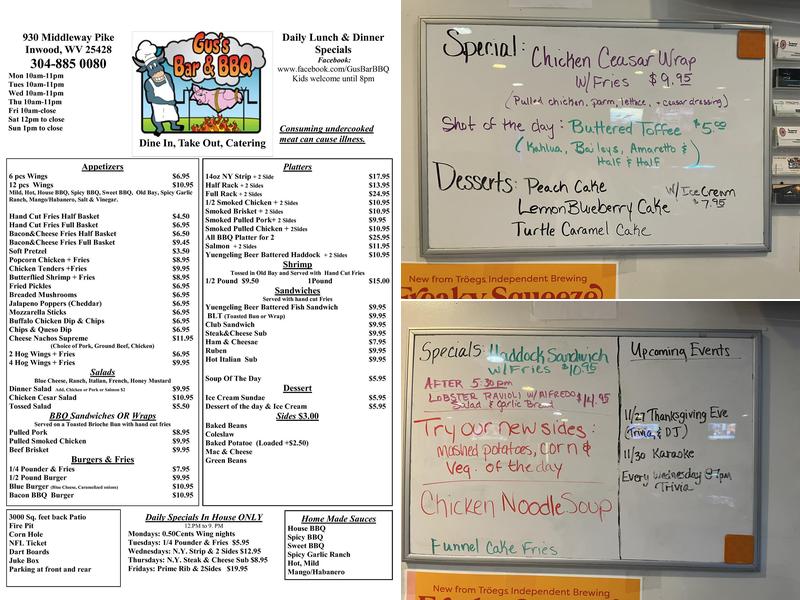 930 Middleway Pike
Inwood, WV 25428
304-885 0080
Mon 10am-11pm
Tues 10am-11pm
Wed 10am-11pm
Thu 10am-11pm
Fri 10am-close
Sat 12pm to close
Sun 1pm to close
Gus's
Bar & BBQ
Dine In, Take Out, Catering
Daily Lunch & Dinner
Specials
Facebook:
www.facebook.com/GusBarBBQ
Kids welcome until 8pm
Consuming undercooked
meat can cause illness.
Appetizers
6 pcs Wings $6.95
12 pcs Wings $10.95
Mild, Hot, House BBQ, Spicy BBQ, Sweet BBQ, Old Bay, Spicy Garlic
Ranch, Mango/Habanero, Salt & Vinegar.
Hand Cut Fries Half Basket $4.50
Hand Cut Fries Full Basket $6.95
Bacon&Cheese Fries Half Basket $6.50
Bacon&Cheese Fries Full Basket $9.45
Soft Pretzel $3.50
Popcorn Chicken + Fries $8.95
Chicken Tenders +Fries $9.95
Butterflied Shrimp + Fries $8.95
Fried Pickles $6.95
Breaded Mushrooms $6.95
Jalapeno Poppers (Cheddar) $6.95
Mozzarella Sticks $6.95
Buffalo Chicken Dip & Chips $6.95
Chips & Queso Dip $6.95
Cheese Nachos Supreme $11.95
(Choice of Pork, Ground Beef, Chicken)
2 Hog Wings + Fries $6.95
4 Hog Wings + Fries $9.95
Salads
Blue Cheese, Ranch, Italian, French, Honey Mustard
Dinner Salad Add, Chicken or Pork or Salmon $2 $9.95
Chicken Cesar Salad $10.95
Tossed Salad $5.50
BBQ Sandwiches OR Wraps
Served on a Toasted Brioche Bun with hand cut fries
Pulled Pork $8.95
Pulled Smoked Chicken $9.95
Beef Brisket $9.95
Burgers & Fries
1/4 Pounder & Fries $7.95
1/2 Pound Burger $9.95
Blue Burger (Blue Cheese, Caramelized onions) $10.95
Bacon BBQ Burger $10.95
Platters
14oz NY Strip + 2 Side $17.95
Half Rack + 2 Sides $13.95
Full Rack + 2 Sides $24.95
1/2 Smoked Chicken + 2 Sides $10.95
Smoked Brisket + 2 Sides $10.95
Smoked Pulled Pork+ 2 Sides $9.95
Smoked Pulled Chicken + 2Sides $10.95
All BBQ Platter for 2 $25.95
Salmon + 2 Sides $11.95
Yuengeling Beer Battered Haddock + 2 Sides $10.95
Shrimp
Tossed in Old Bay and Served with Hand Cut Fries
1/2 Pound $9.50 1Pound $15.00
Sandwiches
Served with hand cut Fries
Yuengeling Beer Battered Fish Sandwich $9.95
BLT (Toasted Bun or Wrap) $9.95
Club Sandwich $9.95
Steak&Cheese Sub $9.95
Ham & Cheesae $7.95
Ruben $9.95
Hot Italian Sub $9.95
Soup Of The Day $5.95
Dessert
Ice Cream Sundae $5.95
Dessert of the day & Ice Cream $5.95
Sides $3.00
Baked Beans
Coleslaw
Baked Potatoe (Loaded +$2.50)
Mac & Cheese
Green Beans
3000 Sq. feet back Patio
Fire Pit
Corn Hole
NFL Ticket
Dart Boards
Juke Box
Parking at front and rear
Daily Specials In House ONLY
12.PM to 9. PM
Mondays: 0.50Cents Wing nights
Tuesdays: 1/4 Pounder & Fries $5.95
Wednesdays: N.Y. Strip & 2 Sides $12.95
Thursdays: N.Y. Steak & Cheese Sub $8.95
Fridays: Prime Rib & 2Sides $19.95
Home Made Sauces
House BBQ
Spicy BBQ
Sweet BBQ
Spicy Garlic Ranch
Hot, Mild
Mango/Habanero
Special: Chicken Ceasar Wrap
W/Fries $9.95
(Pulled chicken, parm, lettice, + ceasar dressing)
Shot of the day: Buttered Toffee $5.00
(Kahlua, Baileys, Amaretto &
Half & Half)
Desserts: Peach Cake W/ Ice Cream
Lemon Blueberry Cake $7.95
Turtle Caramel Cake
New from Tröegs Independent Brewing
Freaky Squeeze
Specials: Haddock Sandwich
w/ Fries $10.95
AFTER 5:30pm
LOBSTER RAVIOLI W/ ALFREDO $14.95
Salad & Garlic Bread
Try our new sides:
mashed potatoes, corn &
Veg. of the day
Chicken Noodle Soup
Funnel Cake Fries
Upcoming Events
11/27 Thanksgiving Eve
(Trivia & DJ)
11/30 Karaoke
Every Wednesday @7pm
Trivia
New from Tröegs Independent Brewing